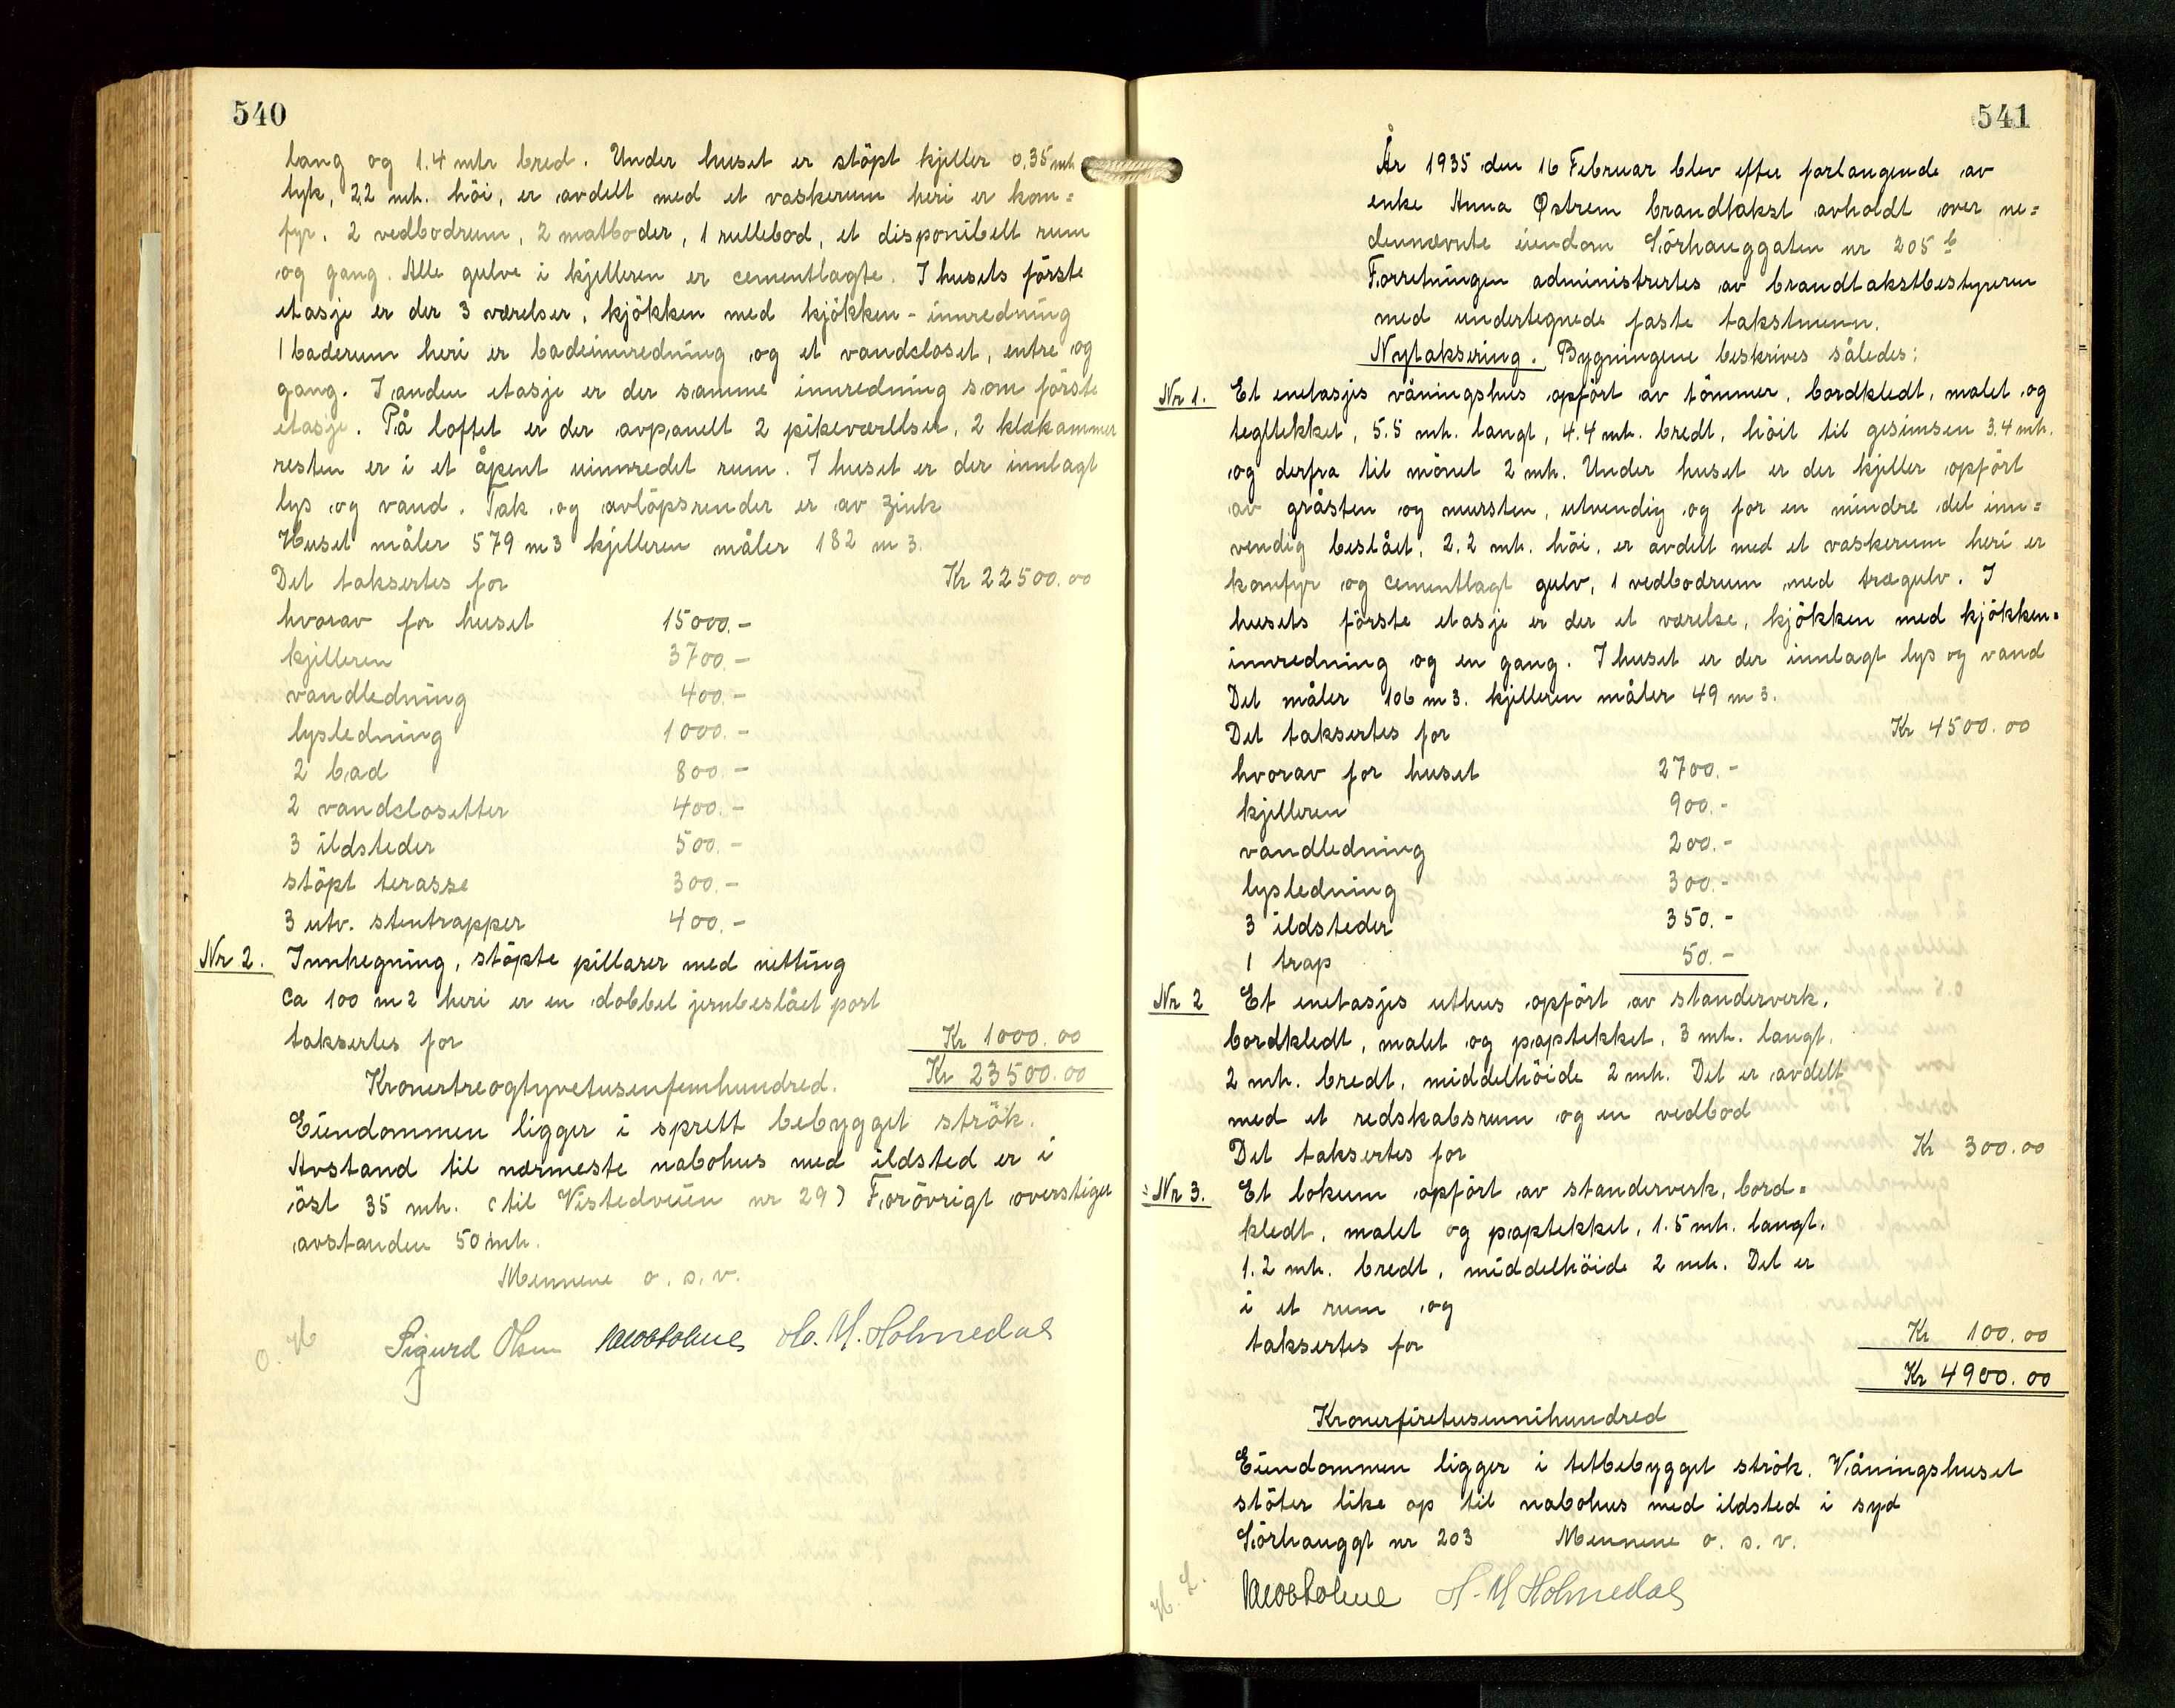 540
lang og 1.4 mtr bred. Under huset er stöpt kjeller 0.35 mtr.
tyk, 2.2 mtr. höi, er avdelt med et vaskerum heri er kom=
fyr. 2 vedbodrum, 2 matboder, 1 rullebod, et disponibelt rum
og gang. Alle gulve i kjelleren er cementlagte. I husets förste
etasje er der 3 værelser, kjökken med kjökken-innredning
1 baderum heri er badeinnredning og et vandcloset, entre og
gang. I anden etasje er der samme innredning som förste
etasje. På loftet er der avpanelt 2 pikeværelser, 2 klækammer
resten er i et åpent uinnredet rum. I huset er der innlagt
lys og vand. Tak og avlöpsrender er av zink
Huset måler 579 m3 kjelleren måler 182 m3.
Det taksertes for Kr 22500.00
hvorav for huset 15000.-
kjelleren 3700.-
vandledning 400.-
lysledning 1000.-
2 bad 800.-
2 vandclosetter 400.-
3 ildsteder 500.-
stöpt terasse 300.-
3 utv. stentrapper 400.-
Nr 2. Innhegning, stöpte pillarer med netting
ca 100 m2 heri er en dobbel jernbeslået port
taksertes for Kr 1000.00
Kronertreogtyvetusenfemhundred. Kr 23500.00
Eiendommen ligger i sprett bebygget strök.
Avstand til nærmeste nabohus med ildsted er i
öst 35 mtr. (til Vistedveien nr 29) Forövrigt overstiger
avstanden 50 mtr.
Mennene o.s.v.
Sigurd Olsen H. M. Holmedal
541
År 1935 den 16 Februar blev efter forlangende av
enke Anna Østrem brandtakst avholdt over ne=
dennævnte eiendom Sörhauggaten nr 205 b
Forretningen administrertes av brandtakstbestyreren
med undertegnede faste takstmenn.
Nytaksering. Bygningene beskrives således:
Nr 1. Et enetasjes våningshus opfört av tömmer, bordkledt, malet og
tegltekket, 5.5 mtr. langt, 4.4 mtr. bredt, höit til gesimsen 3.4 mtr.
og derfra til mönet 2 mtr. Under huset er der kjeller opfört
av gråsten og mursten, utvendig og for en mindre del inn=
vendig beslået, 2.2 mtr. höi, er avdelt med et vaskerum heri er
komfyr og cementlagt gulv, 1 vedbodrum med trægulv. I
husets förste etasje er der et værelse, kjökken med kjökken=
innredning og en gang. I huset er der innlagt lys og vand
Det måler 106 m3. kjelleren måler 49 m3.
Det taksertes for Kr 4500.00
hvorav for huset 2700.-
kjelleren 900.-
vandledning 200.-
lysledning 300.-
3 ildsteder 350.-
1 trap 50.-
Nr 2 Et enetasjes uthus opfört av standerverk,
bordkledt, malet og paptekket, 3 mtr. langt,
2 mtr. bredt, middelhöide 2 mtr. Det er avdelt
med et redskabsrum og en vedbod
Det taksertes for Kr 300.00
Nr 3. Et lokum opfört av standerverk, bord=
kledt, malet og paptekket, 1.5 mtr. langt,
1.2 mtr. bredt, middelhöide 2 mtr. Det er
i et rum og
taksertes for Kr 100.00
Kr 4900.00
Kronerfiretusennihundred
Eiendommen ligger i tetbebygget strök. Våningshuset
stöter like op til nabohus med ildsted i syd
Sörhauggt nr 203 Mennene o.s.v.
H. M Holmedal